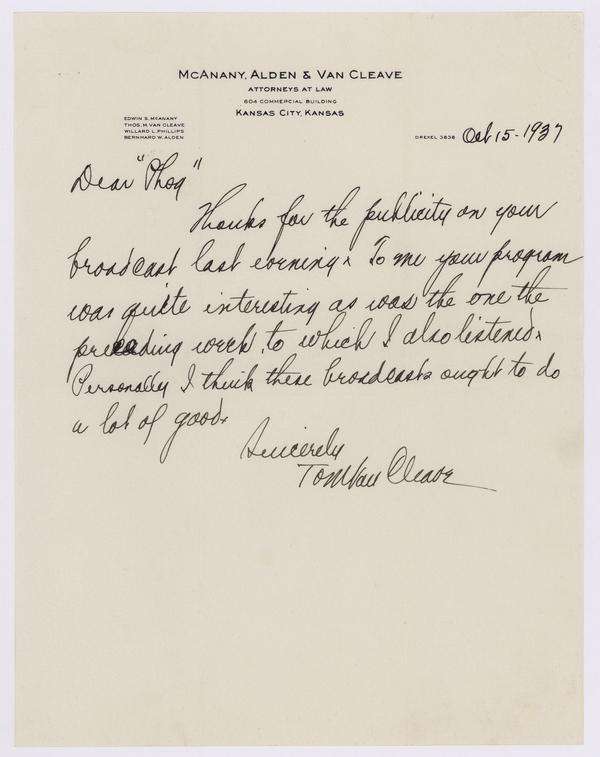 McAnany, Alden & Van Cleave
Attorneys at Law
604 Commercial Building
Kansas City, Kansas
Edwin S. McAnany
Thos. M. Van Cleave
Willard L. Phillips
Bernhard W. Alden
Drexel 3838
Oct 15 - 1937
Dear "Phog"
Thanks for the publicity on your
broadcast last evening. To me your program
was quite interesting as was the one the
preceeding week, to which I also listened.
Personally I think these broadcasts ought to do
a lot of good.
Sincerely
Tom Van Cleave